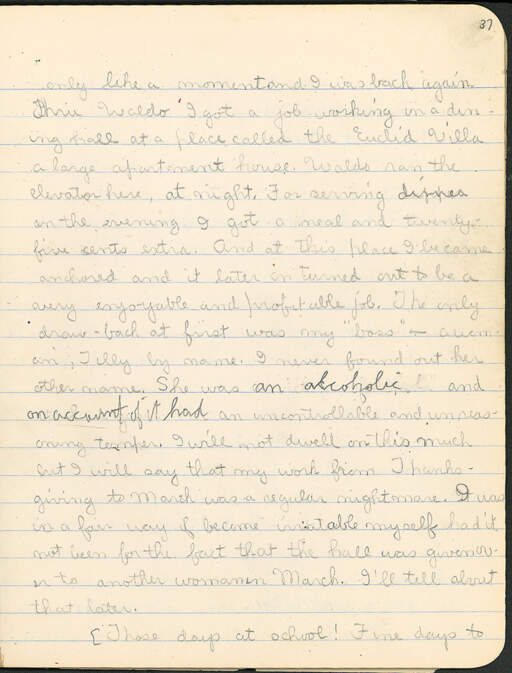 37
only like a moment and I was back again.
Thru Waldo I got a job working in a din-
ing hall at a place called the Euclid Villa
a large apartment house. Waldo ran the
elevator here, at night. For serving dinner
in the evening I got a meal and twenty-
five cents extra. And at this place I became
anchored and it later on turned out to be a
very enjoyable and profitable job. The only
draw-back at first was my "boss" — a wom-
an, Tilly by name. I never found out her
other name. She was an alcoholic and
on account of it had an uncontrollable and unreas-
oning temper. I will not dwell on this much
but I will say that my work from Thanks-
giving to March was a regular nightmare. I was
in a fair way of become irratable myself had it
not been for the fact that the hall was given ov-
er to another woman in March. I'll tell about
that later.
[Those days at school! Fine days to